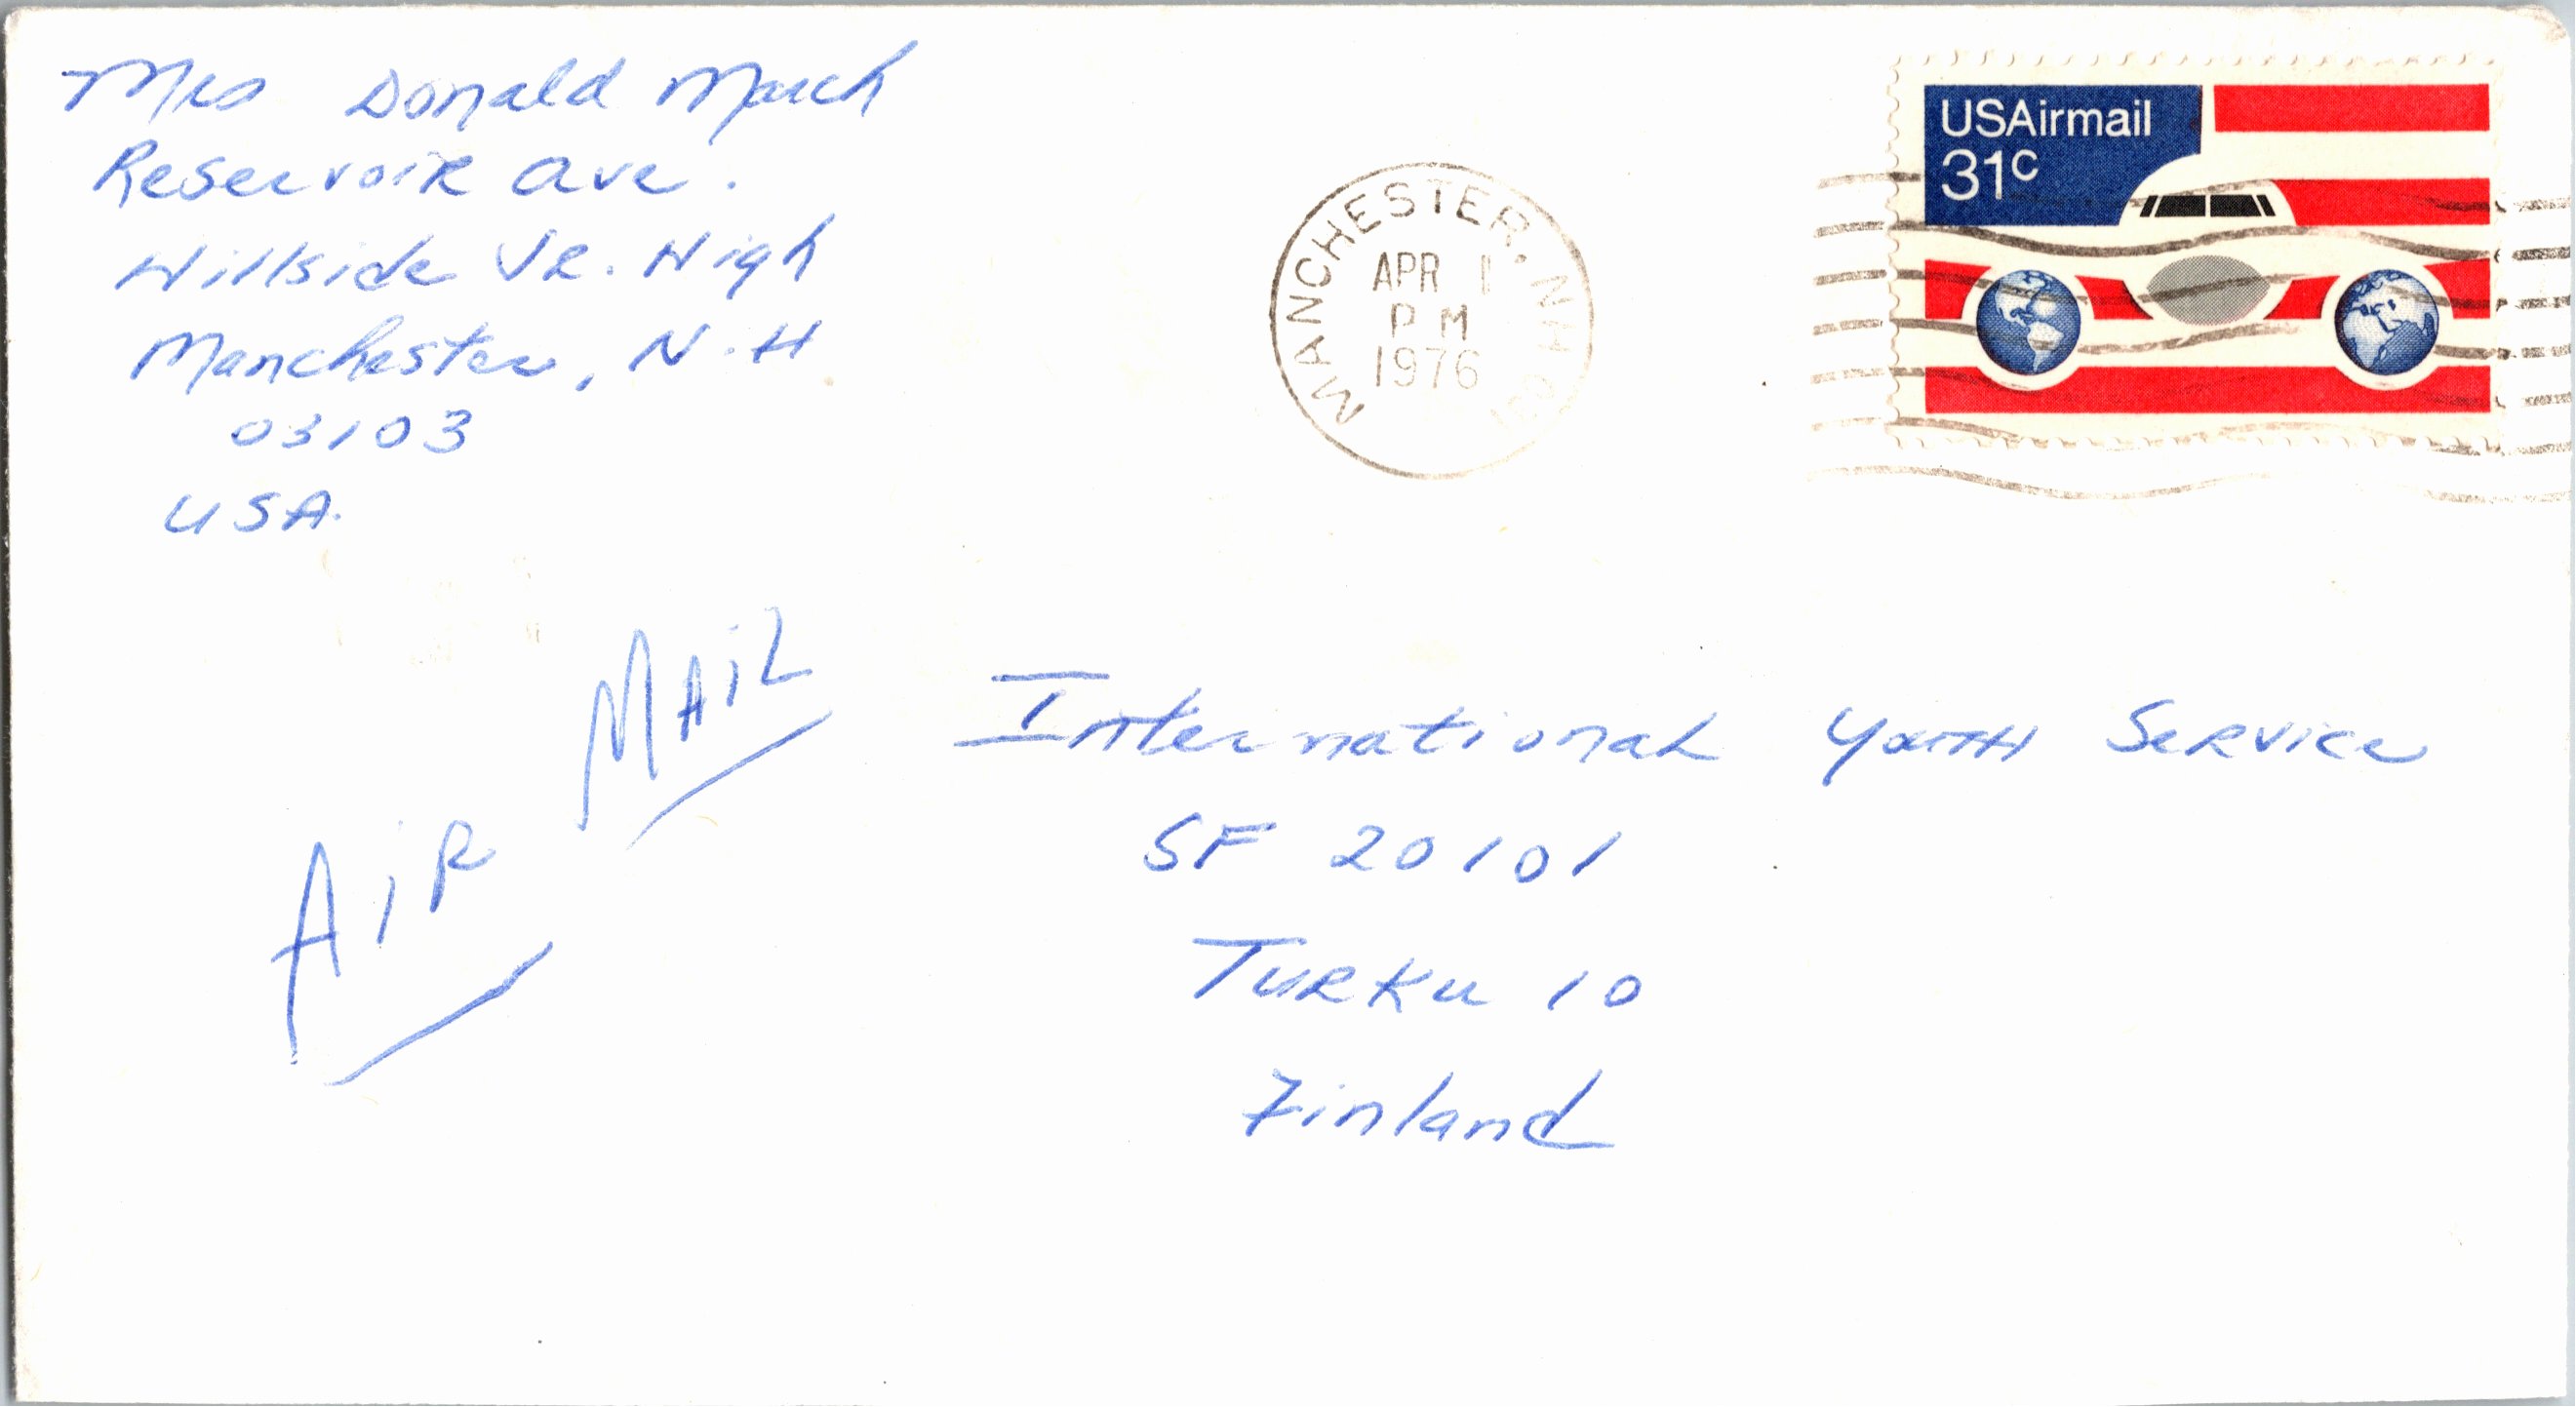 Mrs Donald March
Reservoir Ave.
Hillside Jr. High
Manchester, N.H
03103
USA.
MANCHESTER, NH
APR 1
PM
1976
USAirmail
31c
AIR MAIL
International Youth Service
SF 20101
Turku 10
Finland